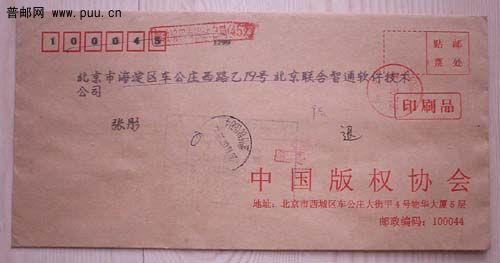 普邮网 www.puu.cn
100045
贴 邮
票 处
北京市海淀区车公庄西路乙19号 北京联合智通软件技术
公司
印刷品
张彤
退
中国版权协会
地址：北京市西城区车公庄大街甲4号物华大厦5层
邮政编码：100044